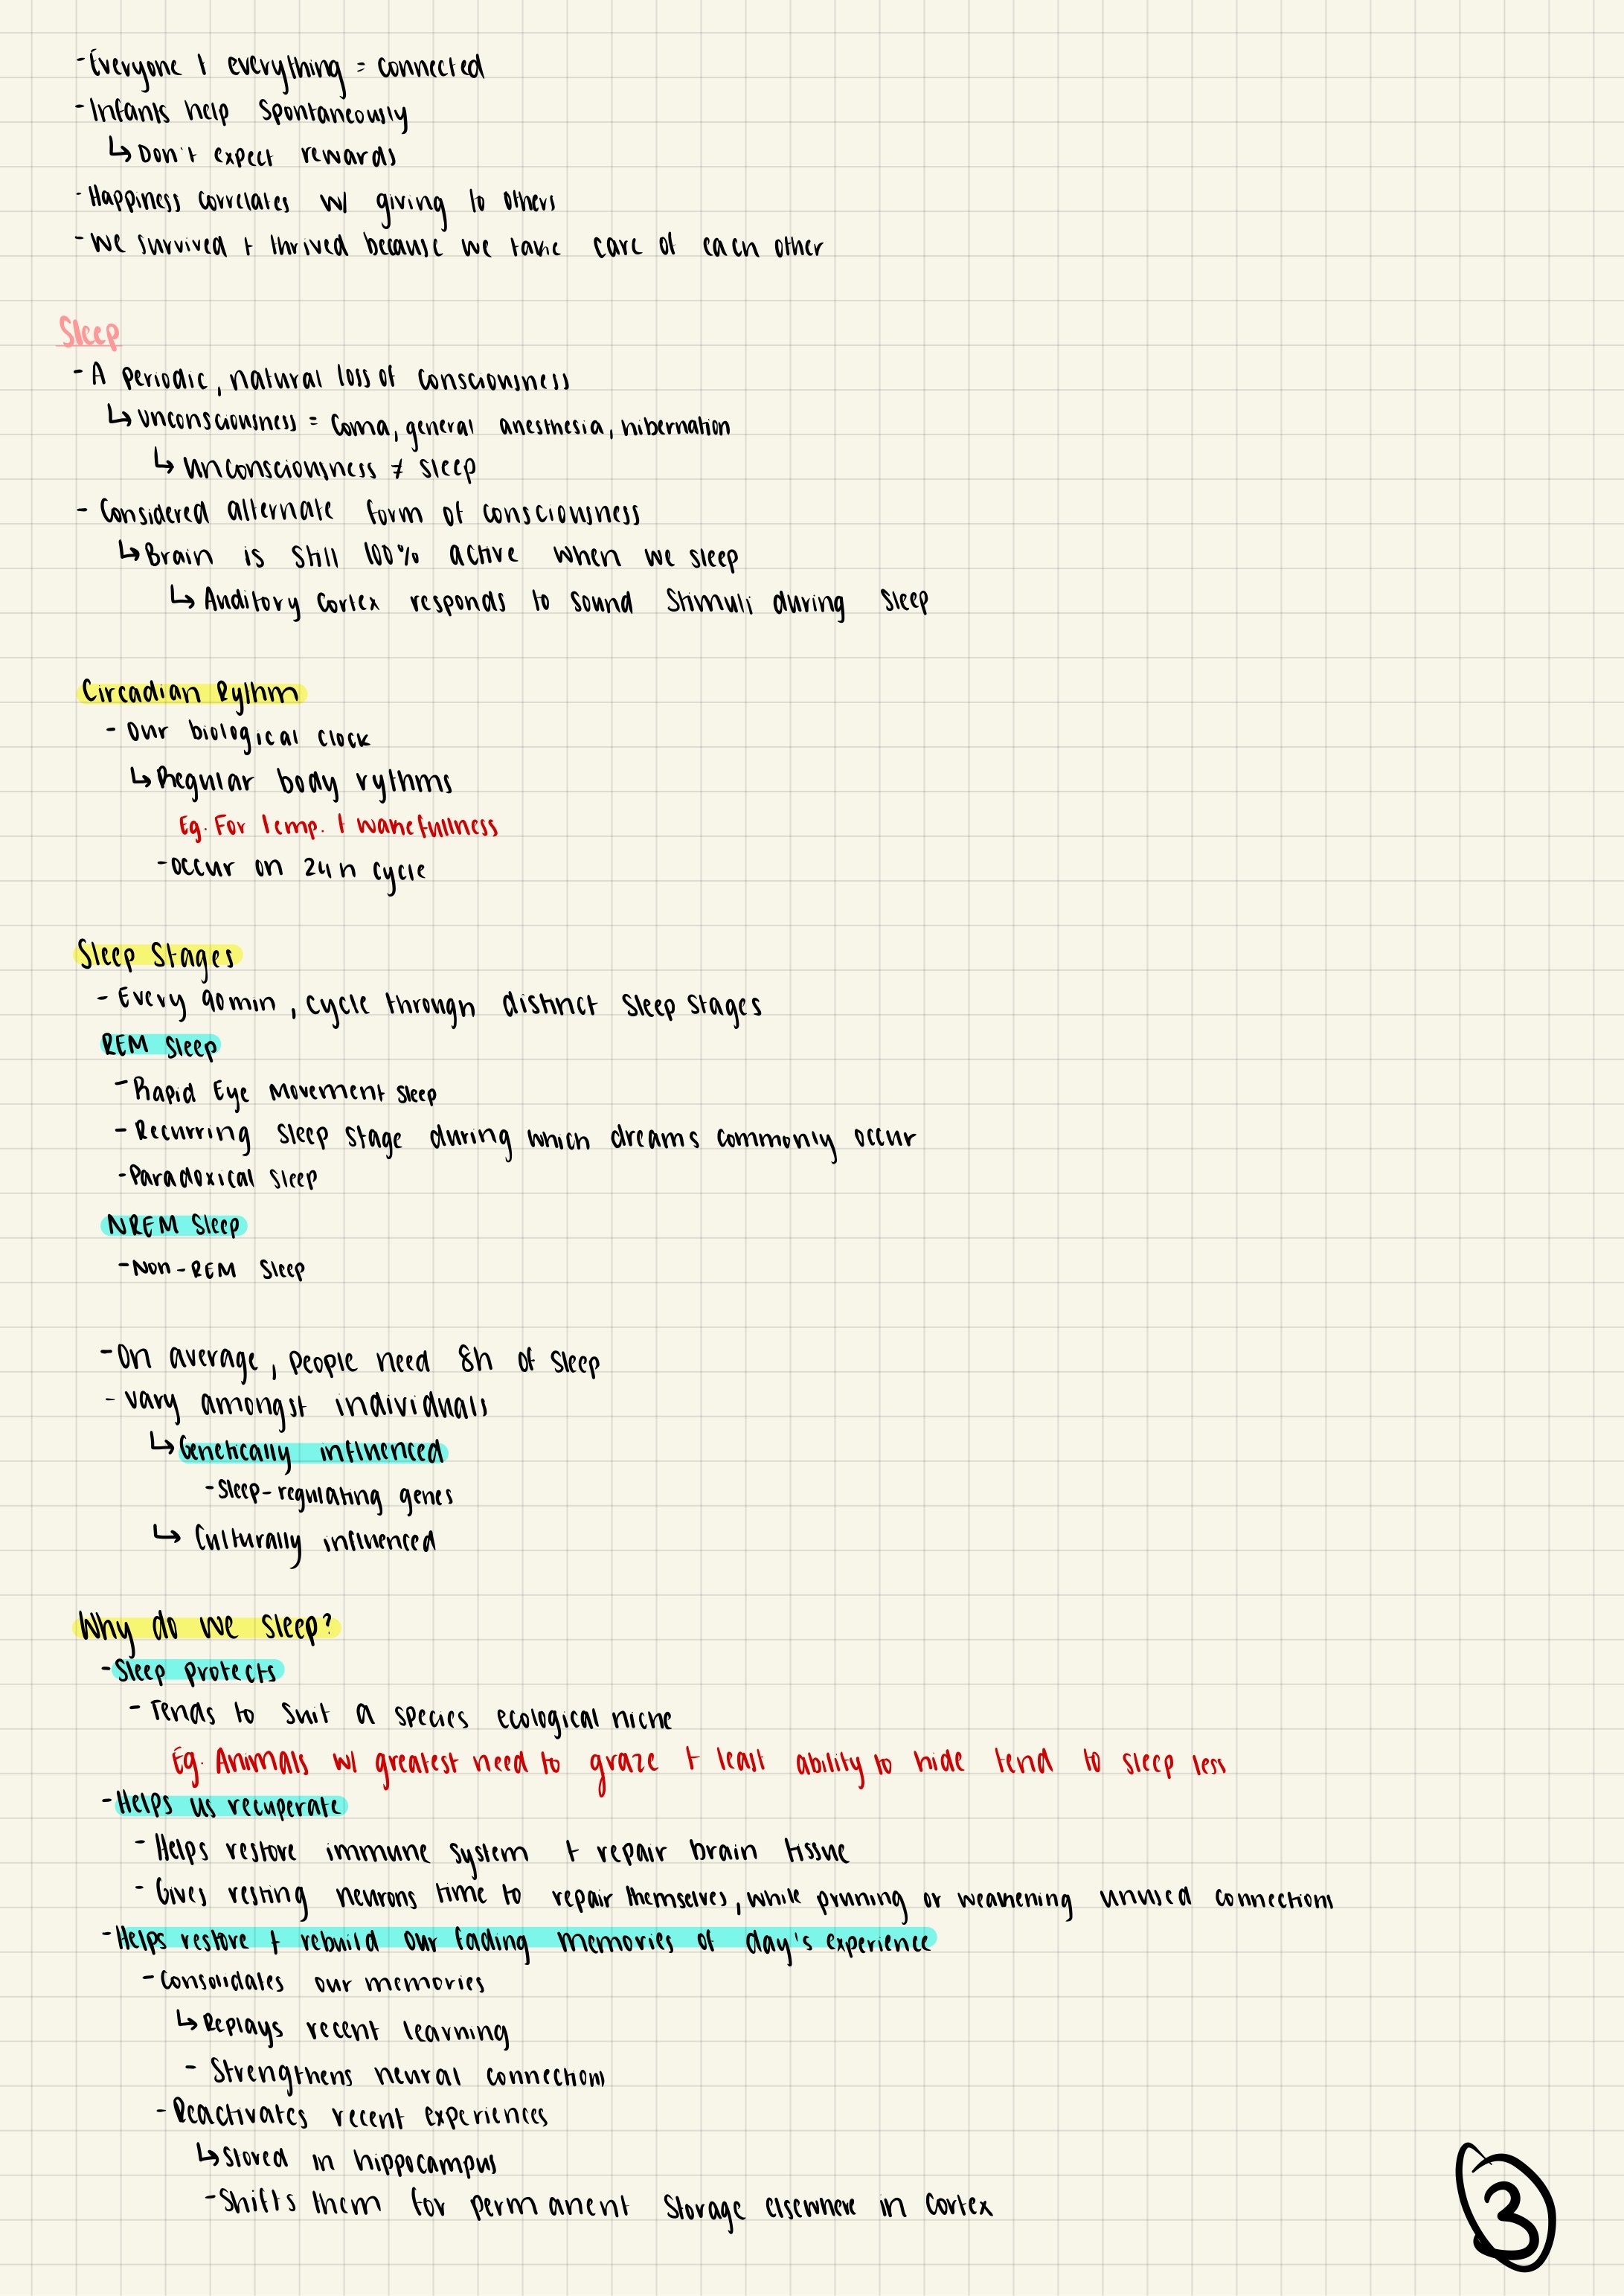 - Everyone + everything = connected
- Infants help spontaneously
↳ Don't expect rewards
- Happiness correlates w/ giving to others
- We survived + thrived because we take care of each other
Sleep
- A periodic, natural loss of consciousness
↳ unconsciousness = coma, general anesthesia, hibernation
↳ unconsciousness ≠ sleep
- Considered alternate form of consciousness
↳ Brain is still 100% active when we sleep
↳ Auditory cortex responds to sound stimuli during sleep
Circadian Rythm
- Our biological clock
↳ Regular body rythms
Eg. For temp. + wakefullness
- occur on 24h cycle
Sleep Stages
- Every 90min, cycle through distinct sleep stages
REM Sleep
- Rapid Eye Movement sleep
- Recurring sleep stage during which dreams commonly occur
- Paradoxical sleep
NREM Sleep
- Non-REM Sleep
- On average, people need 8h of sleep
- vary amongst individuals
↳ Genetically influenced
- Sleep-regulating genes
↳ Culturally influenced
Why do we sleep?
- Sleep protects
- Tends to suit a species ecological niche
Eg. Animals w/ greatest need to graze + least ability to hide tend to sleep less
- Helps us recuperate
- Helps restore immune system + repair brain tissue
- Gives resting neurons time to repair themselves, while pruning or weakening unused connections
- Helps restore + rebuild our fading memories of day's experience
- Consolidates our memories
↳ Replays recent learning
- Strengthens neural connections
- Reactivates recent experiences
↳ stored in hippocampus
- Shifts them for permanent storage elsewhere in cortex
3